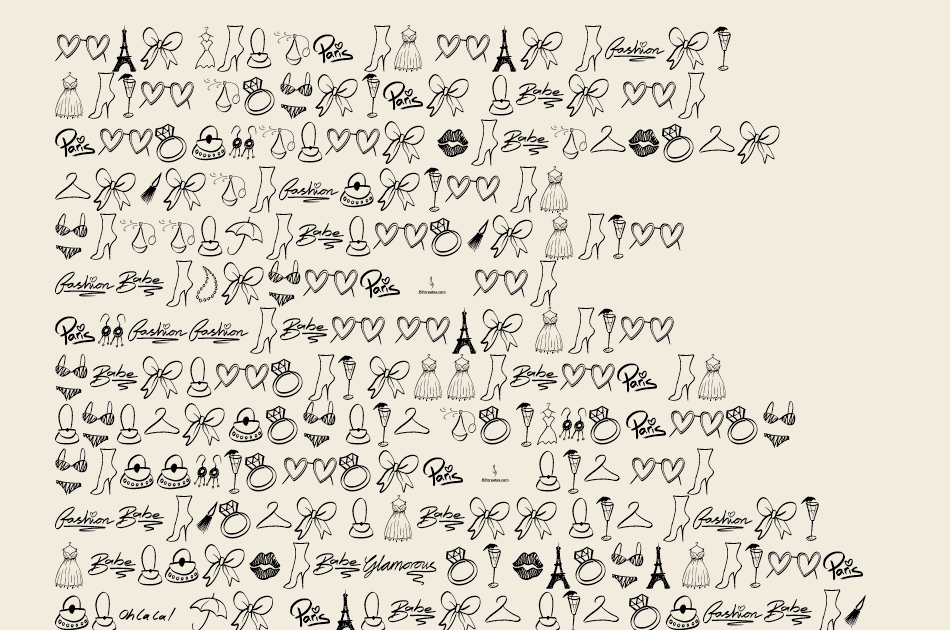 Paris fashion
Paris Babe
Paris Babe
fashion
Babe
fashion Babe Paris
Paris fashion fashion Babe
Babe Babe Paris
Paris
Paris
fashion Babe Babe fashion
Babe Babe Glamorous Paris
Oh la la! Paris Babe fashion Babe